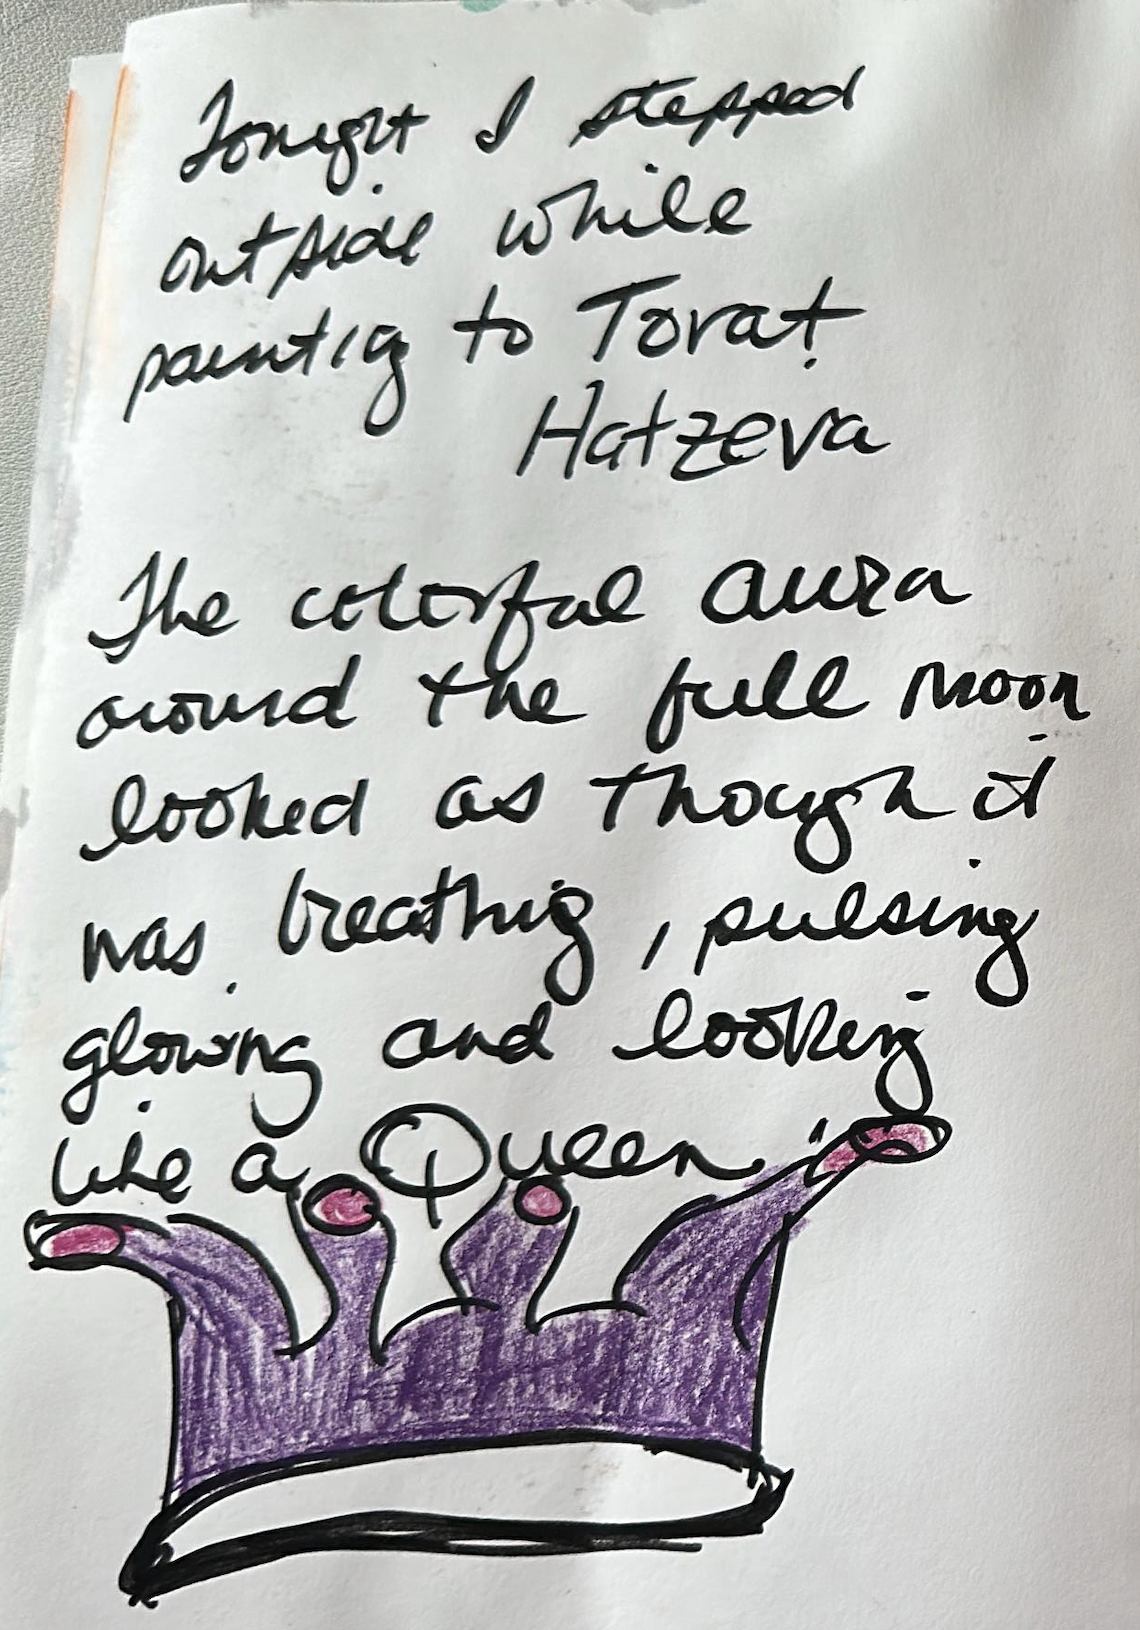 Tonight I stepped
outside while
painting to Torat
Hatzeva
The colorful aura
around the full moon
looked as though it
was breathing, pulsing
glowing and looking
like a Queen